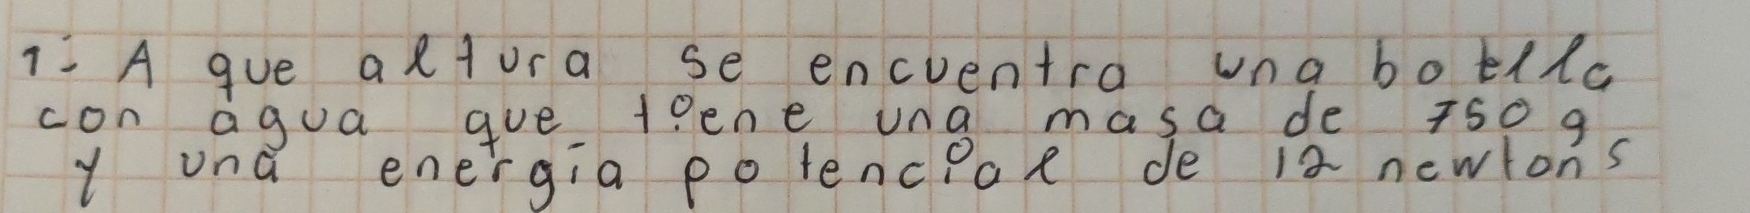 1- A que altura se encuentra una botella
con agua que tiene una masa de 750 g
y una energía potencial de 12 newtons